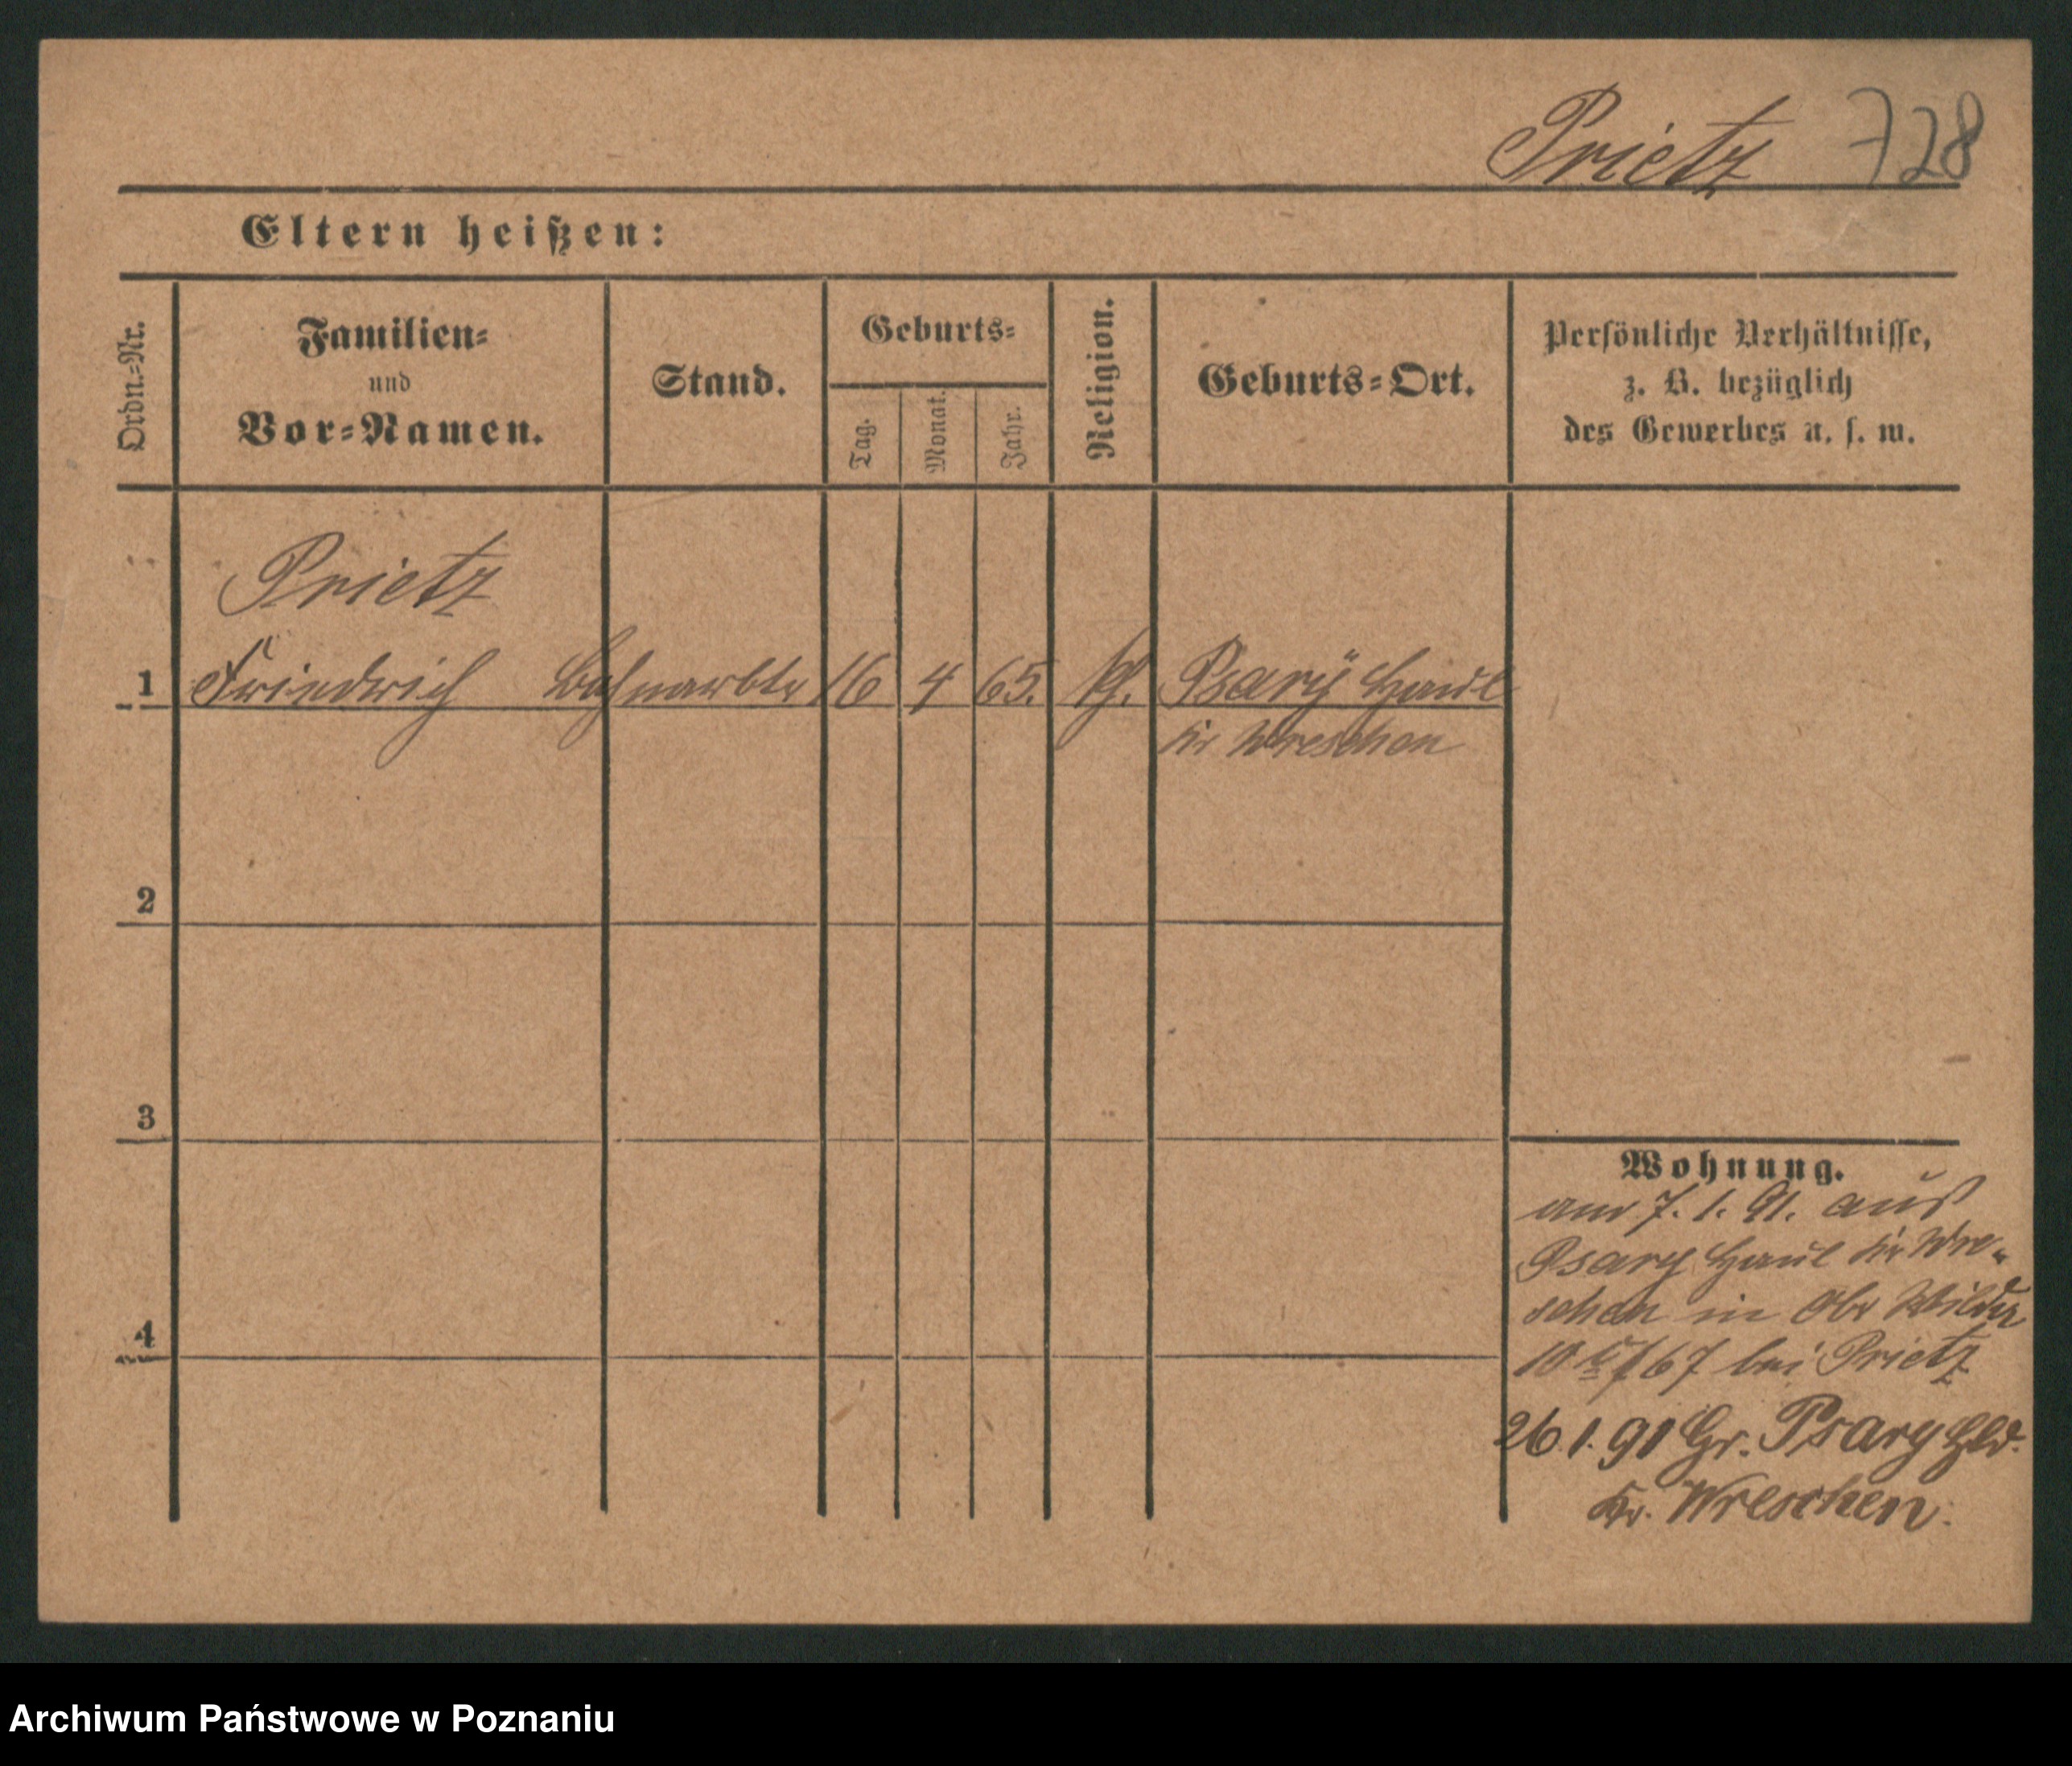 Prietz 728
Eltern heißen:
Ordn.=Nr.
Familien=
und
Vor=Namen.
Stand.
Geburts=
Tag.
Monat.
Jahr.
Religion.
Geburts=Ort.
Persönliche Verhältnisse,
z. B. bezüglich
des Gewerbes u. s. w.
Prietz
1 Friedrich Bahnarbtr 16 4 65. Psarÿ Haul
Kr Wreschen
2
3
4
Wohnung.
am 7. 1. 91. aus
Psary Haul Kr Wre=
schen in Obr Wilda
167 bei Prietz
26.1.91 Gr. Psary Hld.
Kr. Wreschen.
Archiwum Państwowe w Poznaniu